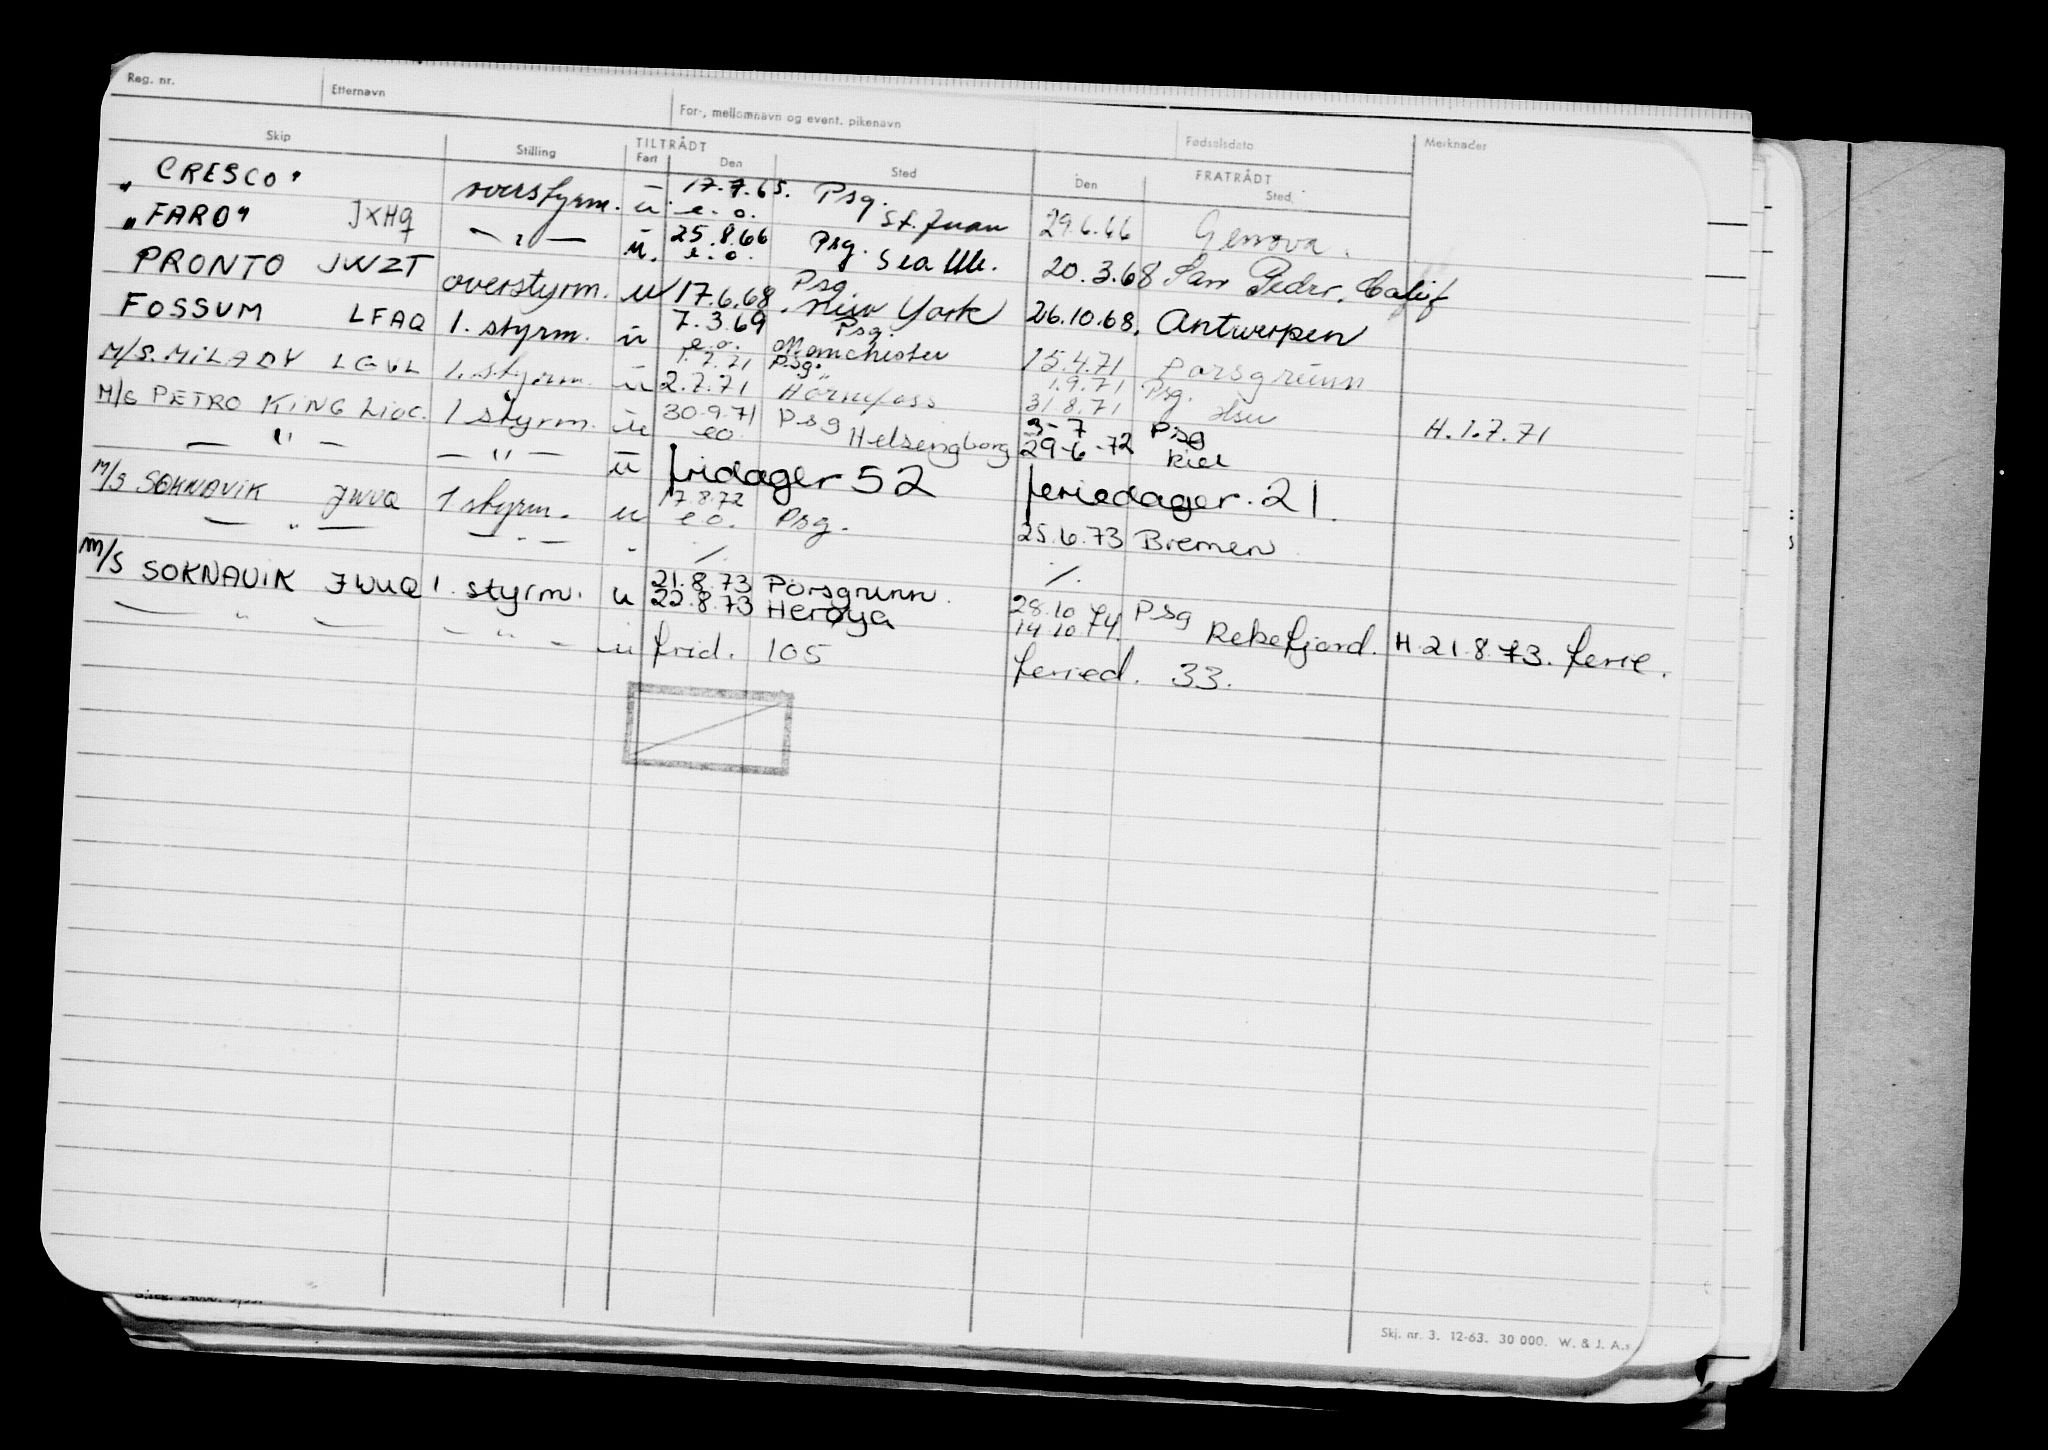 Reg. nr. Etternavn For-, mellomnavn og event. pikenavn Fødselsdato Merknader
Skip Stilling TILTRÅDT Fart Den Sted FRATRÅDT Den Sted
"CRESCO" overstyrm. u 17.7.65. e.o. Psg. St. Juan 29.6.66 Genova.
"FARO" JXHQ — " — u. 25.8.66 e.o. Psg. Seattle. 20.3.68 San Pedro, Calif
PRONTO JWZT overstyrm. u 17.6.68. Psg. New York 26.10.68. Antwerpen
FOSSUM LFAQ 1. styrm. u 7.3.69 e.o. Psg. Manchester 15.4.71 Porsgrunn
M/S. MILADY LGVL 1. styrm. u 1.7.71 2.7.71 Psg. 1.9.71 31.8.71 Psg. H. 1.7.71
M/S PETRO KING 1 styrm. u 30.9.71 eo Psg Helsingborg 3-7 29-6-72 Psg Kiel
— " — — " — u fridager 52 feriedager. 21.
M/S SOKNAVIK JWUQ 1 styrm. u 17.8.72 e.o. Psg. 25.6.73 Bremen
— " — — " — - ⁒ ⁒
M/S SOKNAVIK JWUQ 1. styrm. u 21.8.73 22.8.73 Porsgrunn. Herøya 28.10 14.10 74. Psg Rekefjord. H. 21.8.73. ferie.
— " — — " — u frid. 105 feried. 33.
Skj. nr. 3. 12-63. 30 000. W. & J. A.s